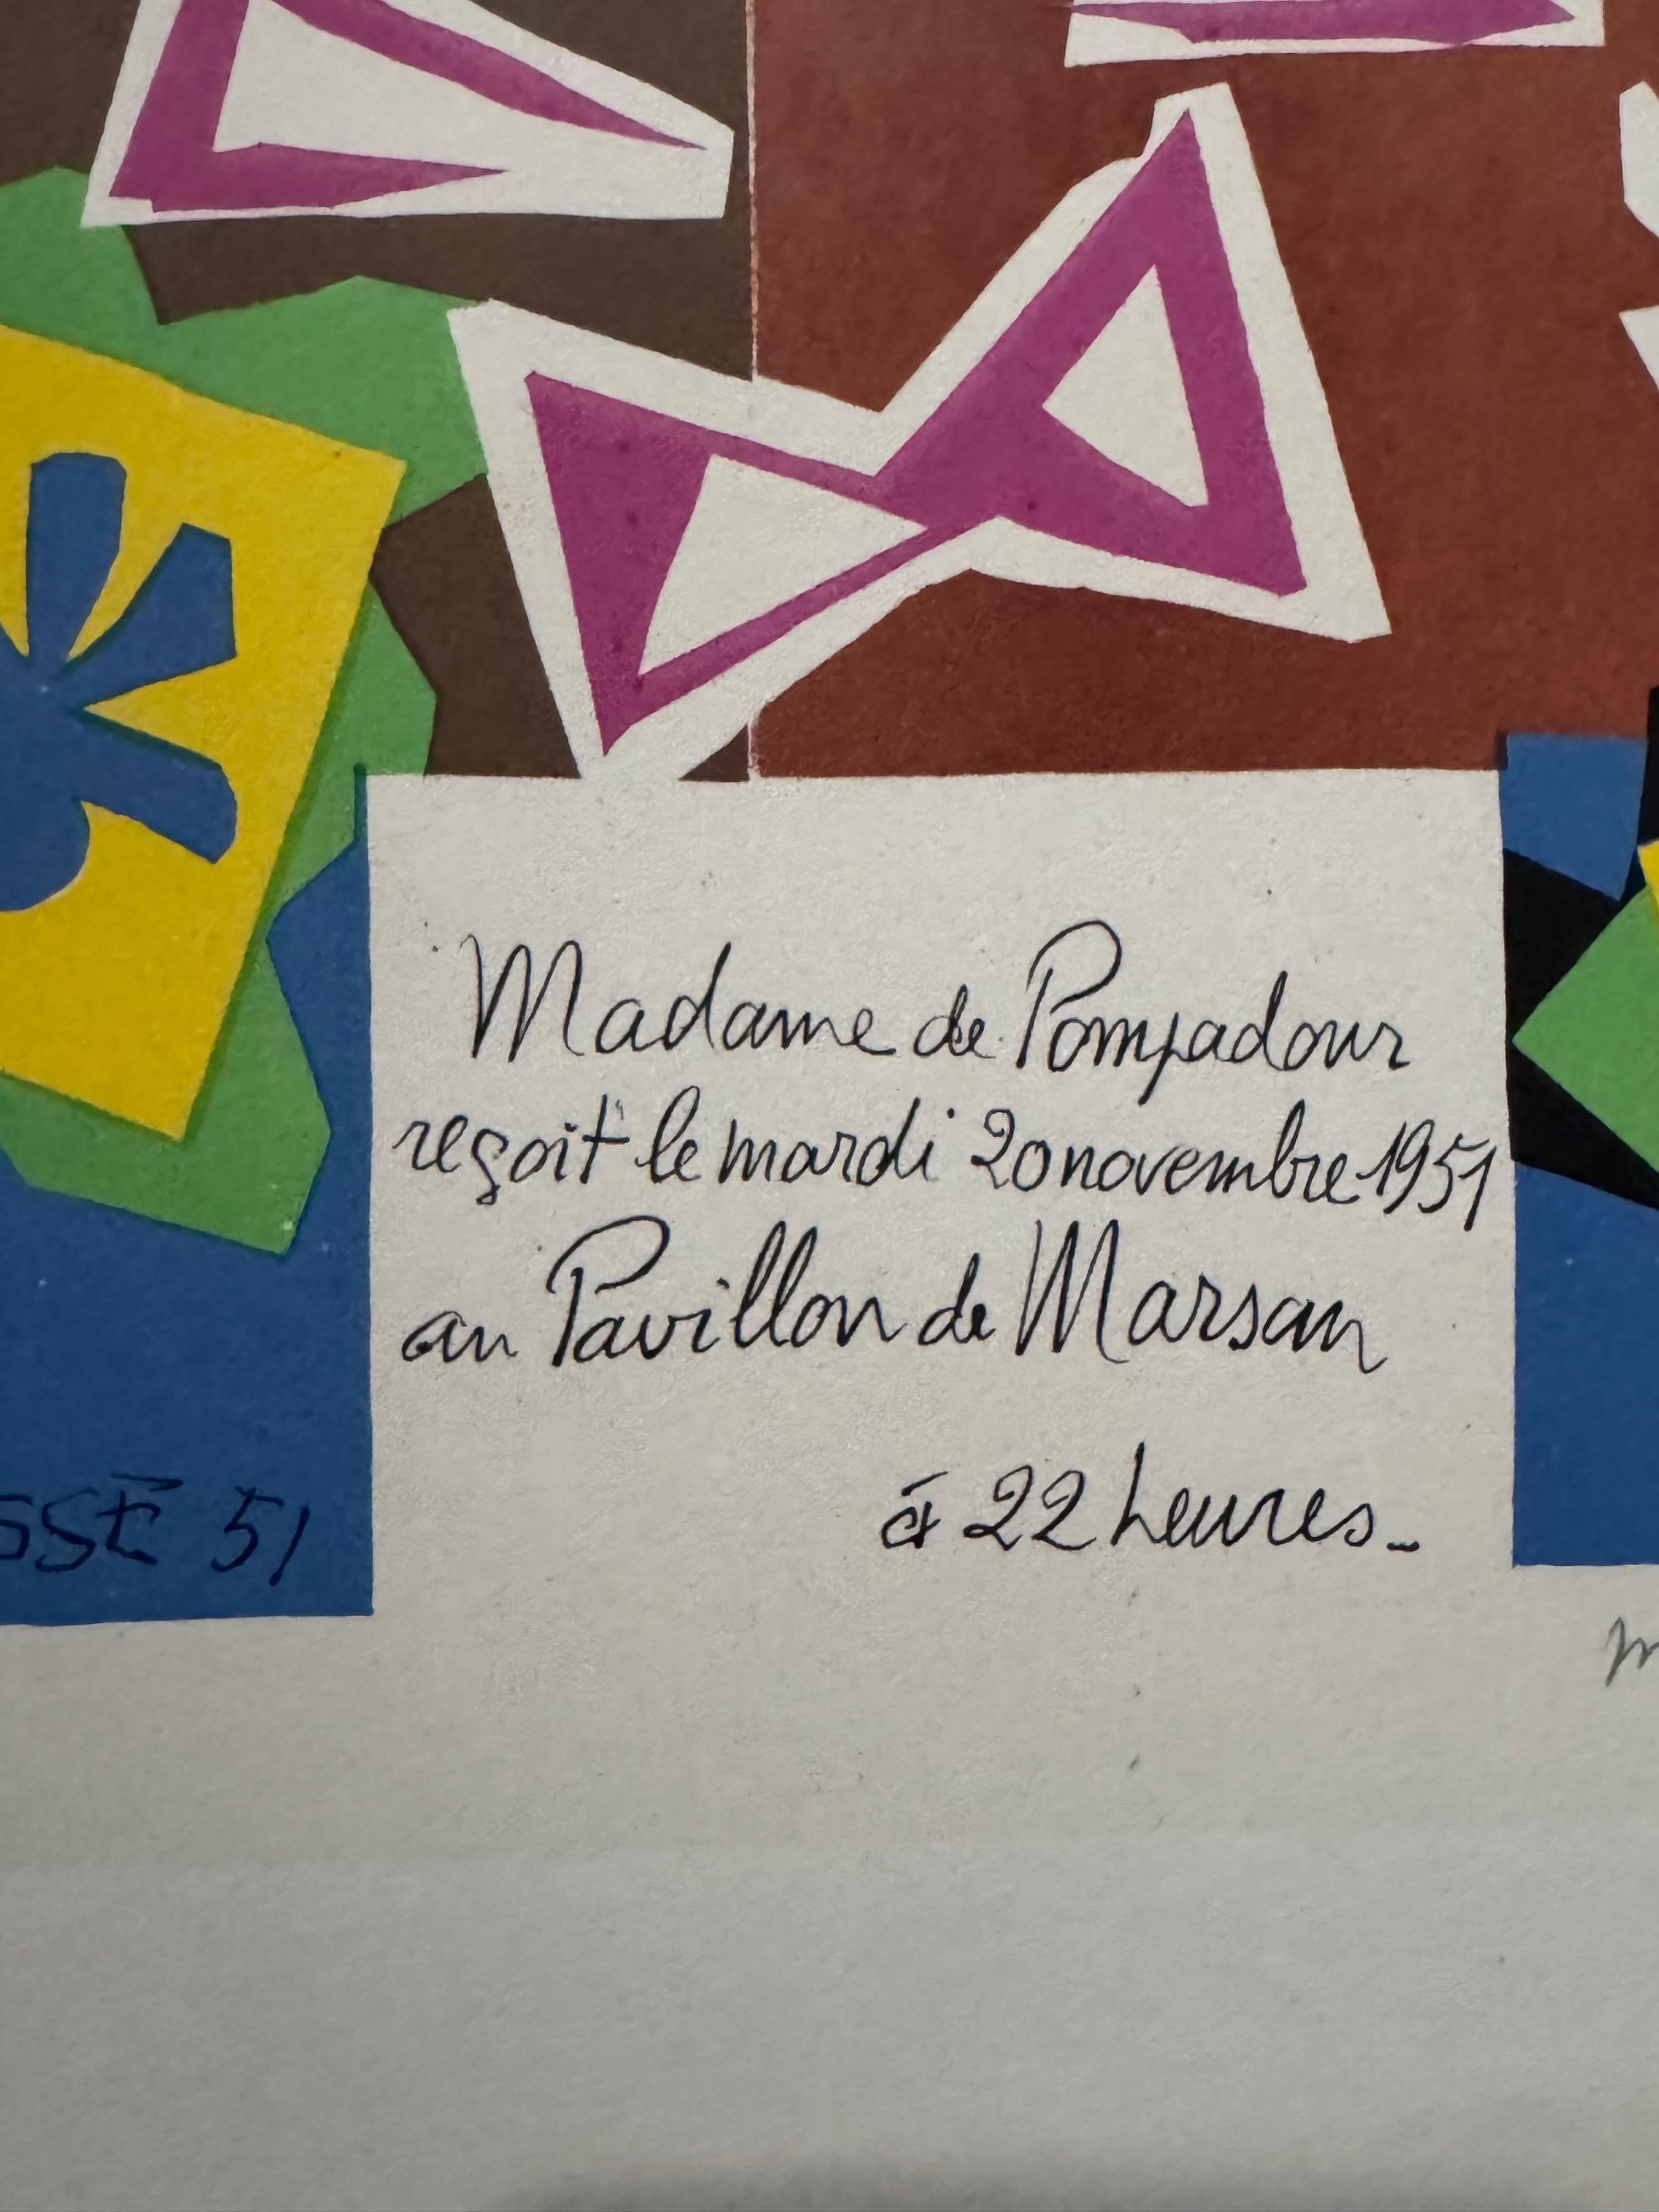 Madame de Pompadour
reçoit le mardi 20 novembre 1951
au Pavillon de Marsan
à 22 heures_
SSE 51